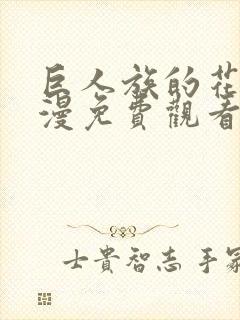 巨人族的花
漫免費觀看
士貴智志 手冢